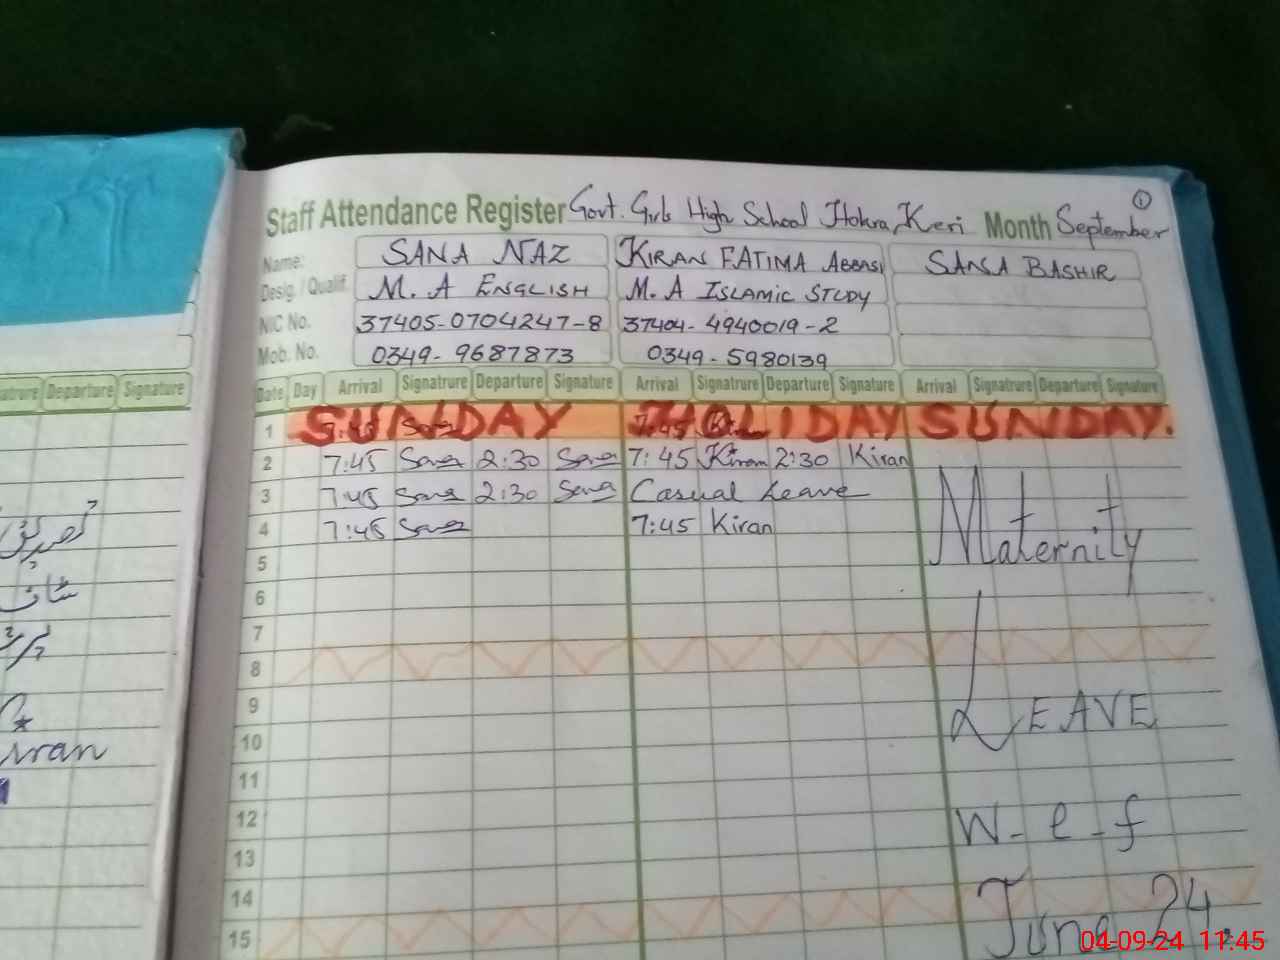 Staff Attendance Register Govt. Girls High School Hokra, Keri Month September 1
Name: SANA NAZ KIRAN FATIMA ABBASI SANA BASHIR
Desig. / Qualif. M.A ENGLISH M.A ISLAMIC STUDY
NIC No. 37405-0704247-8 37404-4940019-2
Mob. No. 0349-9687873 0349-5980139
Departure Signature Date Day Arrival Signatrure Departure Signature Arrival Signatrure Departure Signature Arrival Signatrure Departure Signature
1 SUNDAY HOLIDAY SUNDAY.
7:45 Sana 7:45 Kiran
2 7:45 Sana 2:30 Sana 7:45 Kiran 2:30 Kiran
3 7:45 Sana 2:30 Sana Casual Leave
4 7:45 Sana 7:45 Kiran
Maternity
5
6
7
8
LEAVE
9
10
11
12
w-e-f
13
14
June 24
15
iran
04-09-24 11:45